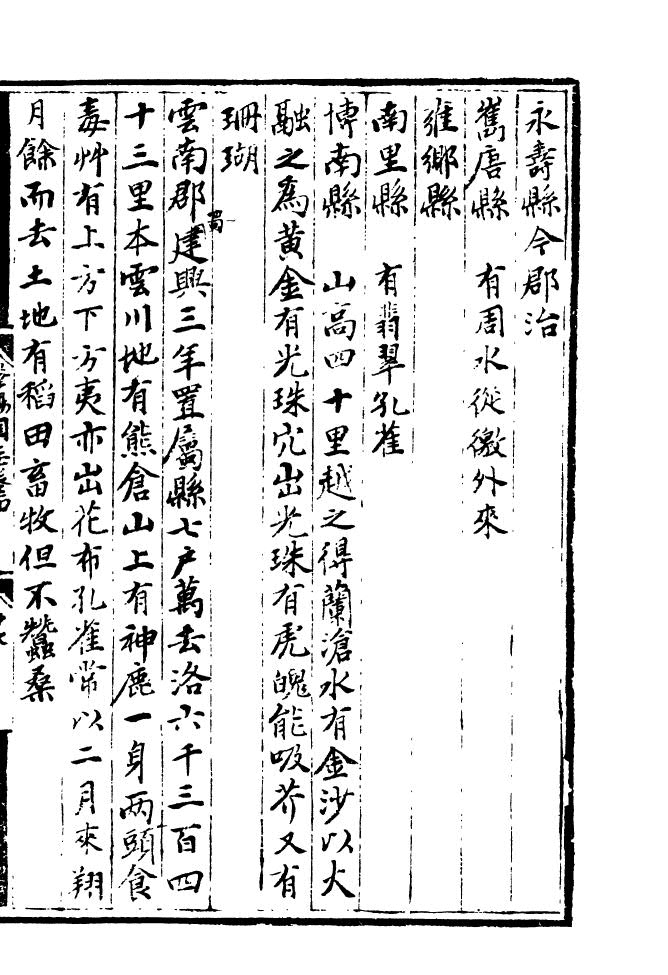 永壽縣今郡治
嶲唐縣　有周水從徼外來
雍鄉縣
南里縣　有翡翠孔雀
博南縣　山高四十里越之得蘭滄水有金沙以火
融之爲黄金有光珠穴出光珠有虎魄能吸芥又有
珊瑚
雲南郡蜀建興三年置屬縣七户萬去洛六千三百四
十三里本雲川地有熊倉山上有神鹿一身两頭食
毒艸有上方下方夷亦出花布孔雀常以二月來翔
月餘而去土地有稻田畜牧但不蠶桑